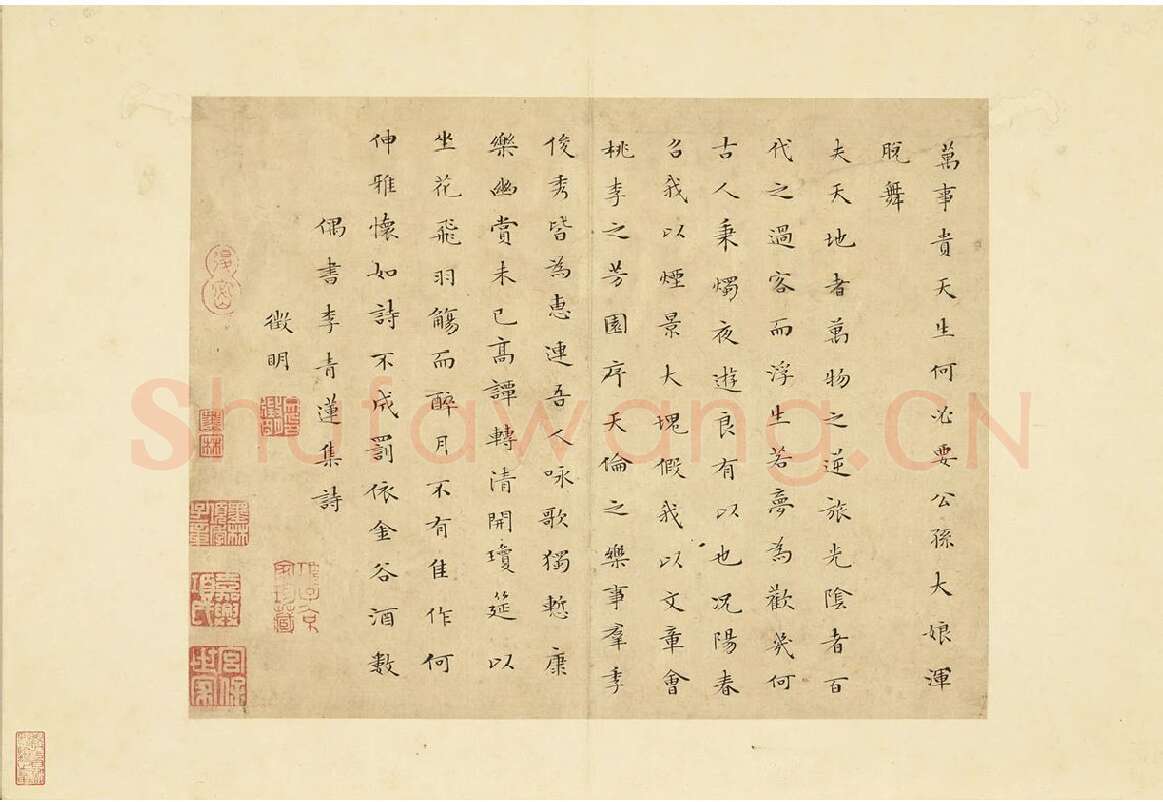 萬事貴天生何必要公孫大娘渾
脫舞
夫天地者萬物之逆旅光陰者百
代之過客而浮生若夢為歡幾何
古人秉燭夜遊良有以也況陽春
召我以煙景大塊假我以文章會
桃李之芳園序天倫之樂事羣季
俊秀皆為惠連吾人咏歌獨慙康
樂幽賞未已高譚轉清開瓊筵以
坐花飛羽觴而醉月不有佳作何
伸雅懷如詩不成罰依金谷酒數
偶書李青蓮集詩
徵明
Shufawang.CN